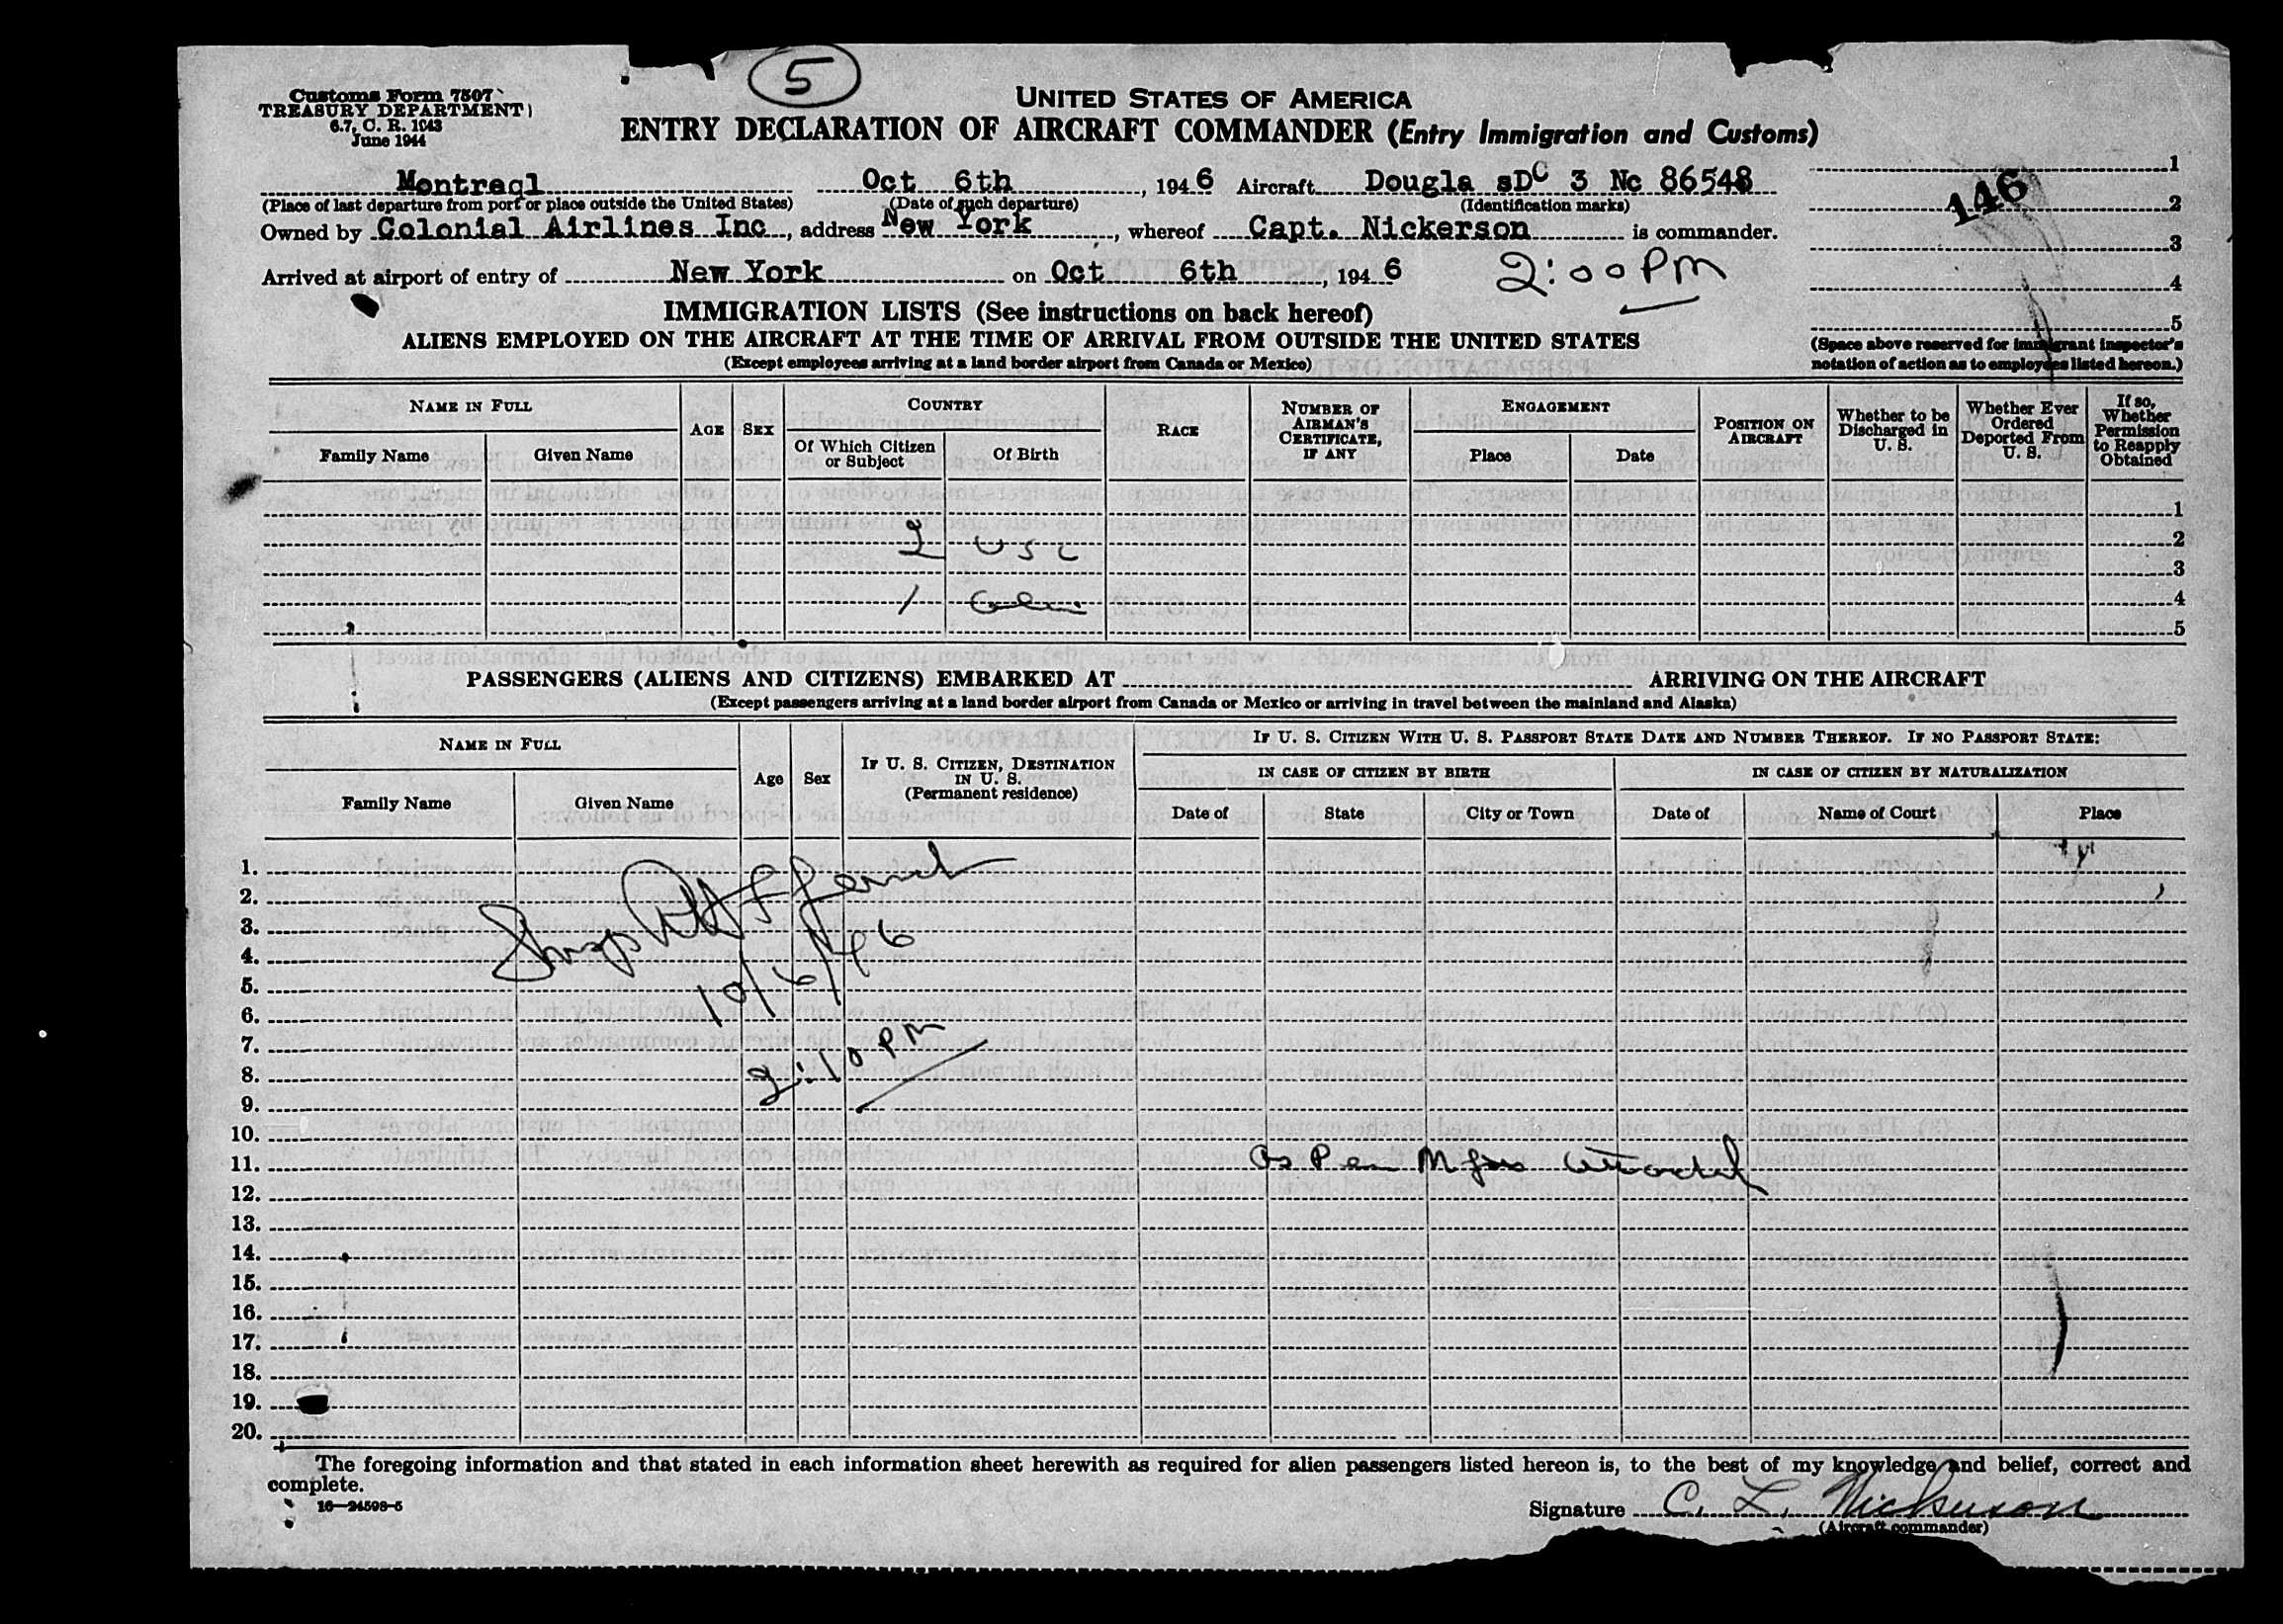 5
Customs Form 7507
TREASURY DEPARTMENT
6.7, C. R. 1943
June 1944
UNITED STATES OF AMERICA
ENTRY DECLARATION OF AIRCRAFT COMMANDER (Entry Immigration and Customs)
Montreal Oct 6th, 1946 Aircraft Dougla sDC 3 Nc 86548
(Place of last departure from port or place outside the United States) (Date of such departure) (Identification marks)
Owned by Colonial Airlines Inc, address New York, whereof Capt. Nickerson is commander.
Arrived at airport of entry of New York on Oct 6th, 1946 2:00 PM
1
146
2
3
4
5
(Space above reserved for immigrant inspector's notation of action as to employees listed hereon.)
IMMIGRATION LISTS (See instructions on back hereof)
ALIENS EMPLOYED ON THE AIRCRAFT AT THE TIME OF ARRIVAL FROM OUTSIDE THE UNITED STATES
(Except employees arriving at a land border airport from Canada or Mexico)
NAME IN FULL AGE SEX COUNTRY RACE NUMBER OF AIRMAN'S CERTIFICATE, IF ANY ENGAGEMENT POSITION ON AIRCRAFT Whether to be Discharged in U. S. Whether Ever Ordered Deported From U. S. If so, Whether Permission to Reapply Obtained
Family Name Given Name Of Which Citizen or Subject Of Birth Place Date
1
2 USC 2
3
1 4
5
PASSENGERS (ALIENS AND CITIZENS) EMBARKED AT ARRIVING ON THE AIRCRAFT
(Except passengers arriving at a land border airport from Canada or Mexico or arriving in travel between the mainland and Alaska)
NAME IN FULL Age Sex IF U. S. CITIZEN, DESTINATION IN U. S. (Permanent residence) IF U. S. CITIZEN WITH U. S. PASSPORT STATE DATE AND NUMBER THEREOF. IF NO PASSPORT STATE:
IN CASE OF CITIZEN BY BIRTH IN CASE OF CITIZEN BY NATURALIZATION
Family Name Given Name Date of State City or Town Date of Name of Court Place
1.
2.
3.
4.
5.
10/6/46
6.
7.
8.
2:10 PM
9.
10.
11. As Per
12.
13.
14.
15.
16.
17.
18.
19.
20.
The foregoing information and that stated in each information sheet herewith as required for alien passengers listed hereon is, to the best of my knowledge and belief, correct and
complete.
16—24598-5
Signature C. L. Nickerson
(Aircraft commander)